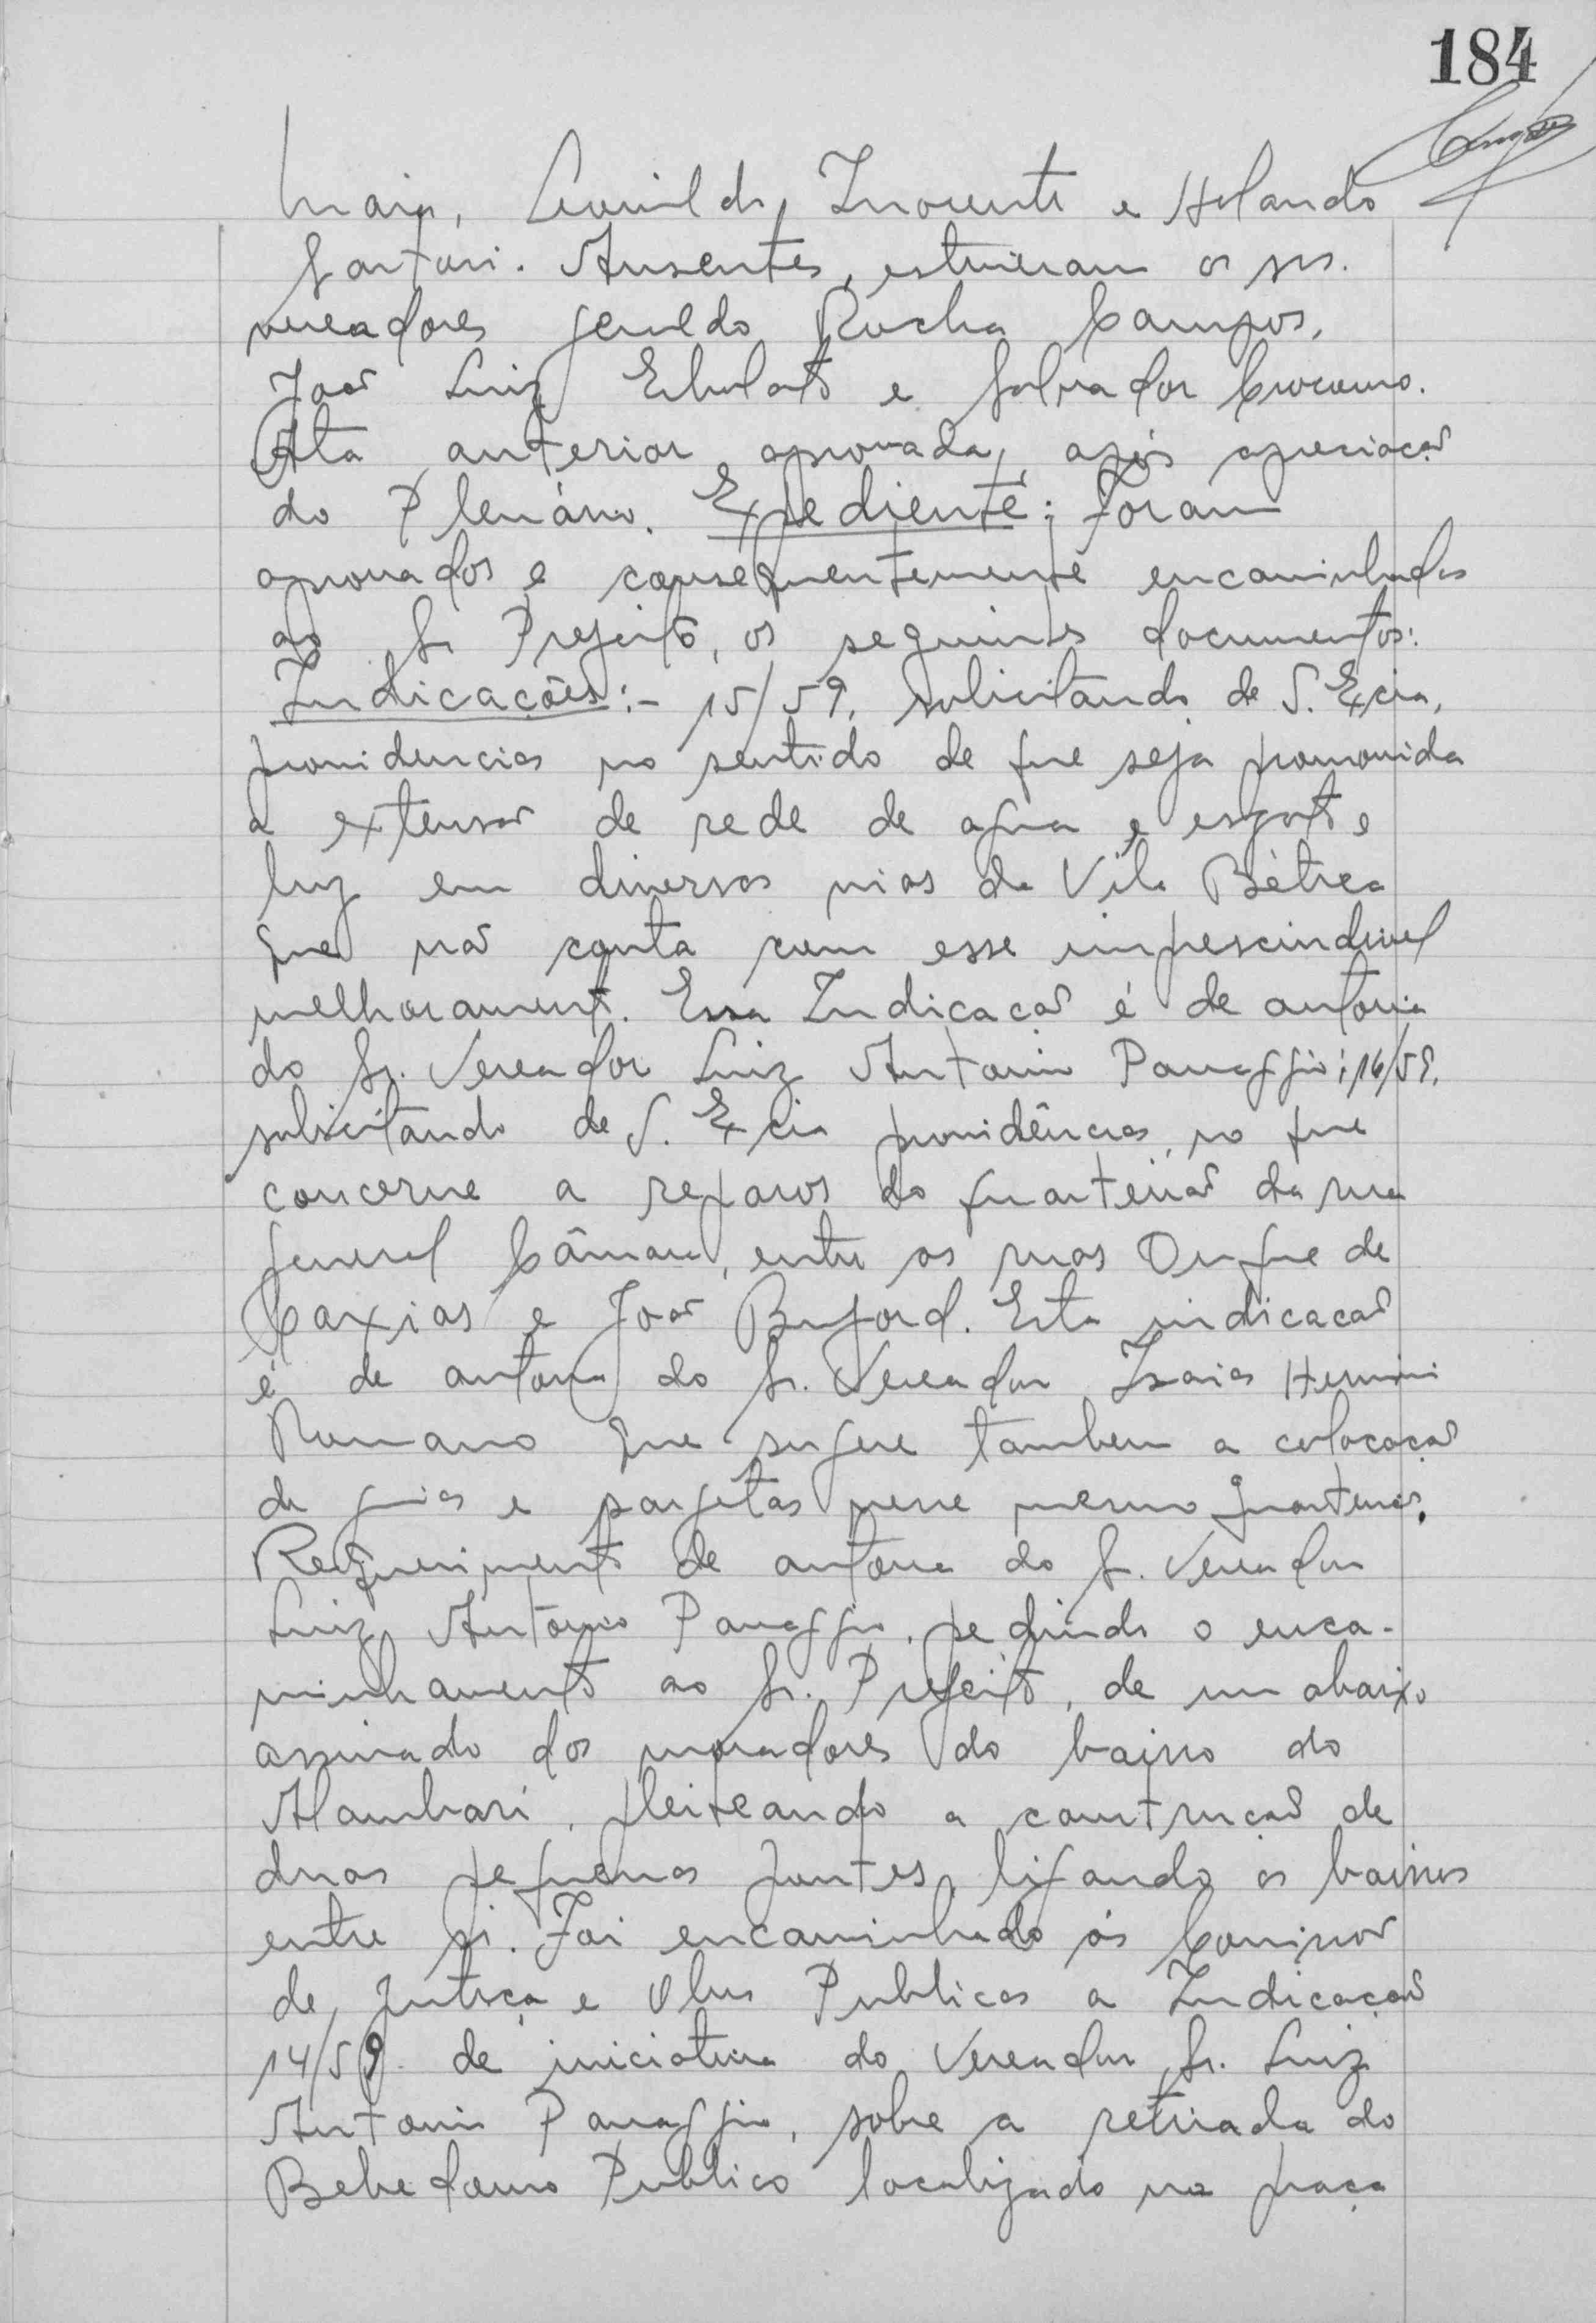 184
Maia, Leonildo Inocente e Holando
Sartori. Ausentes, estiveram os srs.
vereadores Geraldo Rocha Campos,
João Luiz e Salvador
Ata anterior aprovada, após apreciação
do Plenário. Expediente: Foram
aprovados e consequentemente encaminhados
ao Sr Prefeito, os seguintes documentos:
Indicações:- 15/59, solicitando de S. Excia,
providencias no sentido de que seja promovida
a extensão de rede de agua e esgoto e
luz em diversas vias da Vila Bética
que não conta com esse imprescindivel
melhoramento. Essa Indicação é de autoria
do Sr. Vereador Luiz Antonio Panaggio; 16/59,
solicitando de S. Excia providências, no que
concerne a reparos do quarteirão da rua
General Câmara, entre as ruas Duque de
Caxias e João Buford. Esta indicação
é de autoria do Sr. Vereador Izaias Hermini
Romano que sugere tambem a colocação
de guias e sarjetas nesse mesmo quarteirão.
Requerimento de autoria do Sr. Vereador
Luiz Antonio Panaggio, pedindo o enca-
minhamento ao Sr. Prefeito, de um abaixo
assinado dos moradores do bairro do
Alambari, pleiteando a construção de
duas pequenas pontes, ligando os bairros
entre si. Foi encaminhado ás Comissão
de Justiça e Obras Publicas a Indicação
14/59 de iniciativa do Vereador Sr. Luiz
Antonio Panaggio, sobre a retirada do
Bebedouro Publico localizado na praça